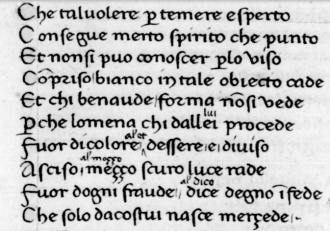 Che taluolere ꝑ temere esperto
Consegue merto spirito che punto
Et nonsi puo conoscer ꝑlo viso
Cōpriso bianco intale obiecto cade
Et chi benaude, forma nōsi vede
ꝑche lomena chi dallei procede
lui
Fuor dicolore, dessere e, diuiso
al et
Asciso, mezzo scuro luce rade
al mezzo
Fuor dogni fraude, dice degno ifede
al dico
Che solo dacostui nasce merzede